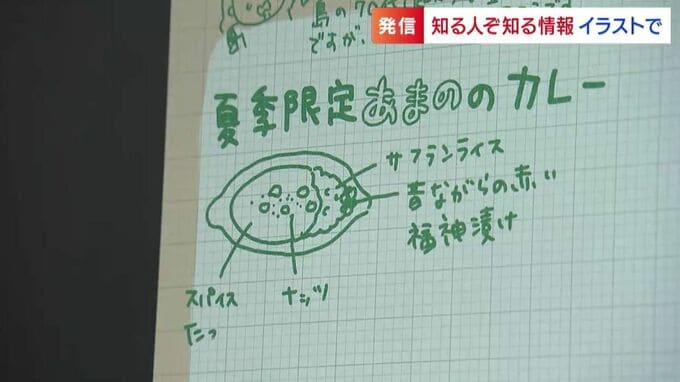 発信 知る人ぞ知る情報 イラストで
島の70代
ですが、
夏季限定あまののカレー
サフランライス
昔ながらの赤い
福神漬け
スパイス
たっ
ナッツ